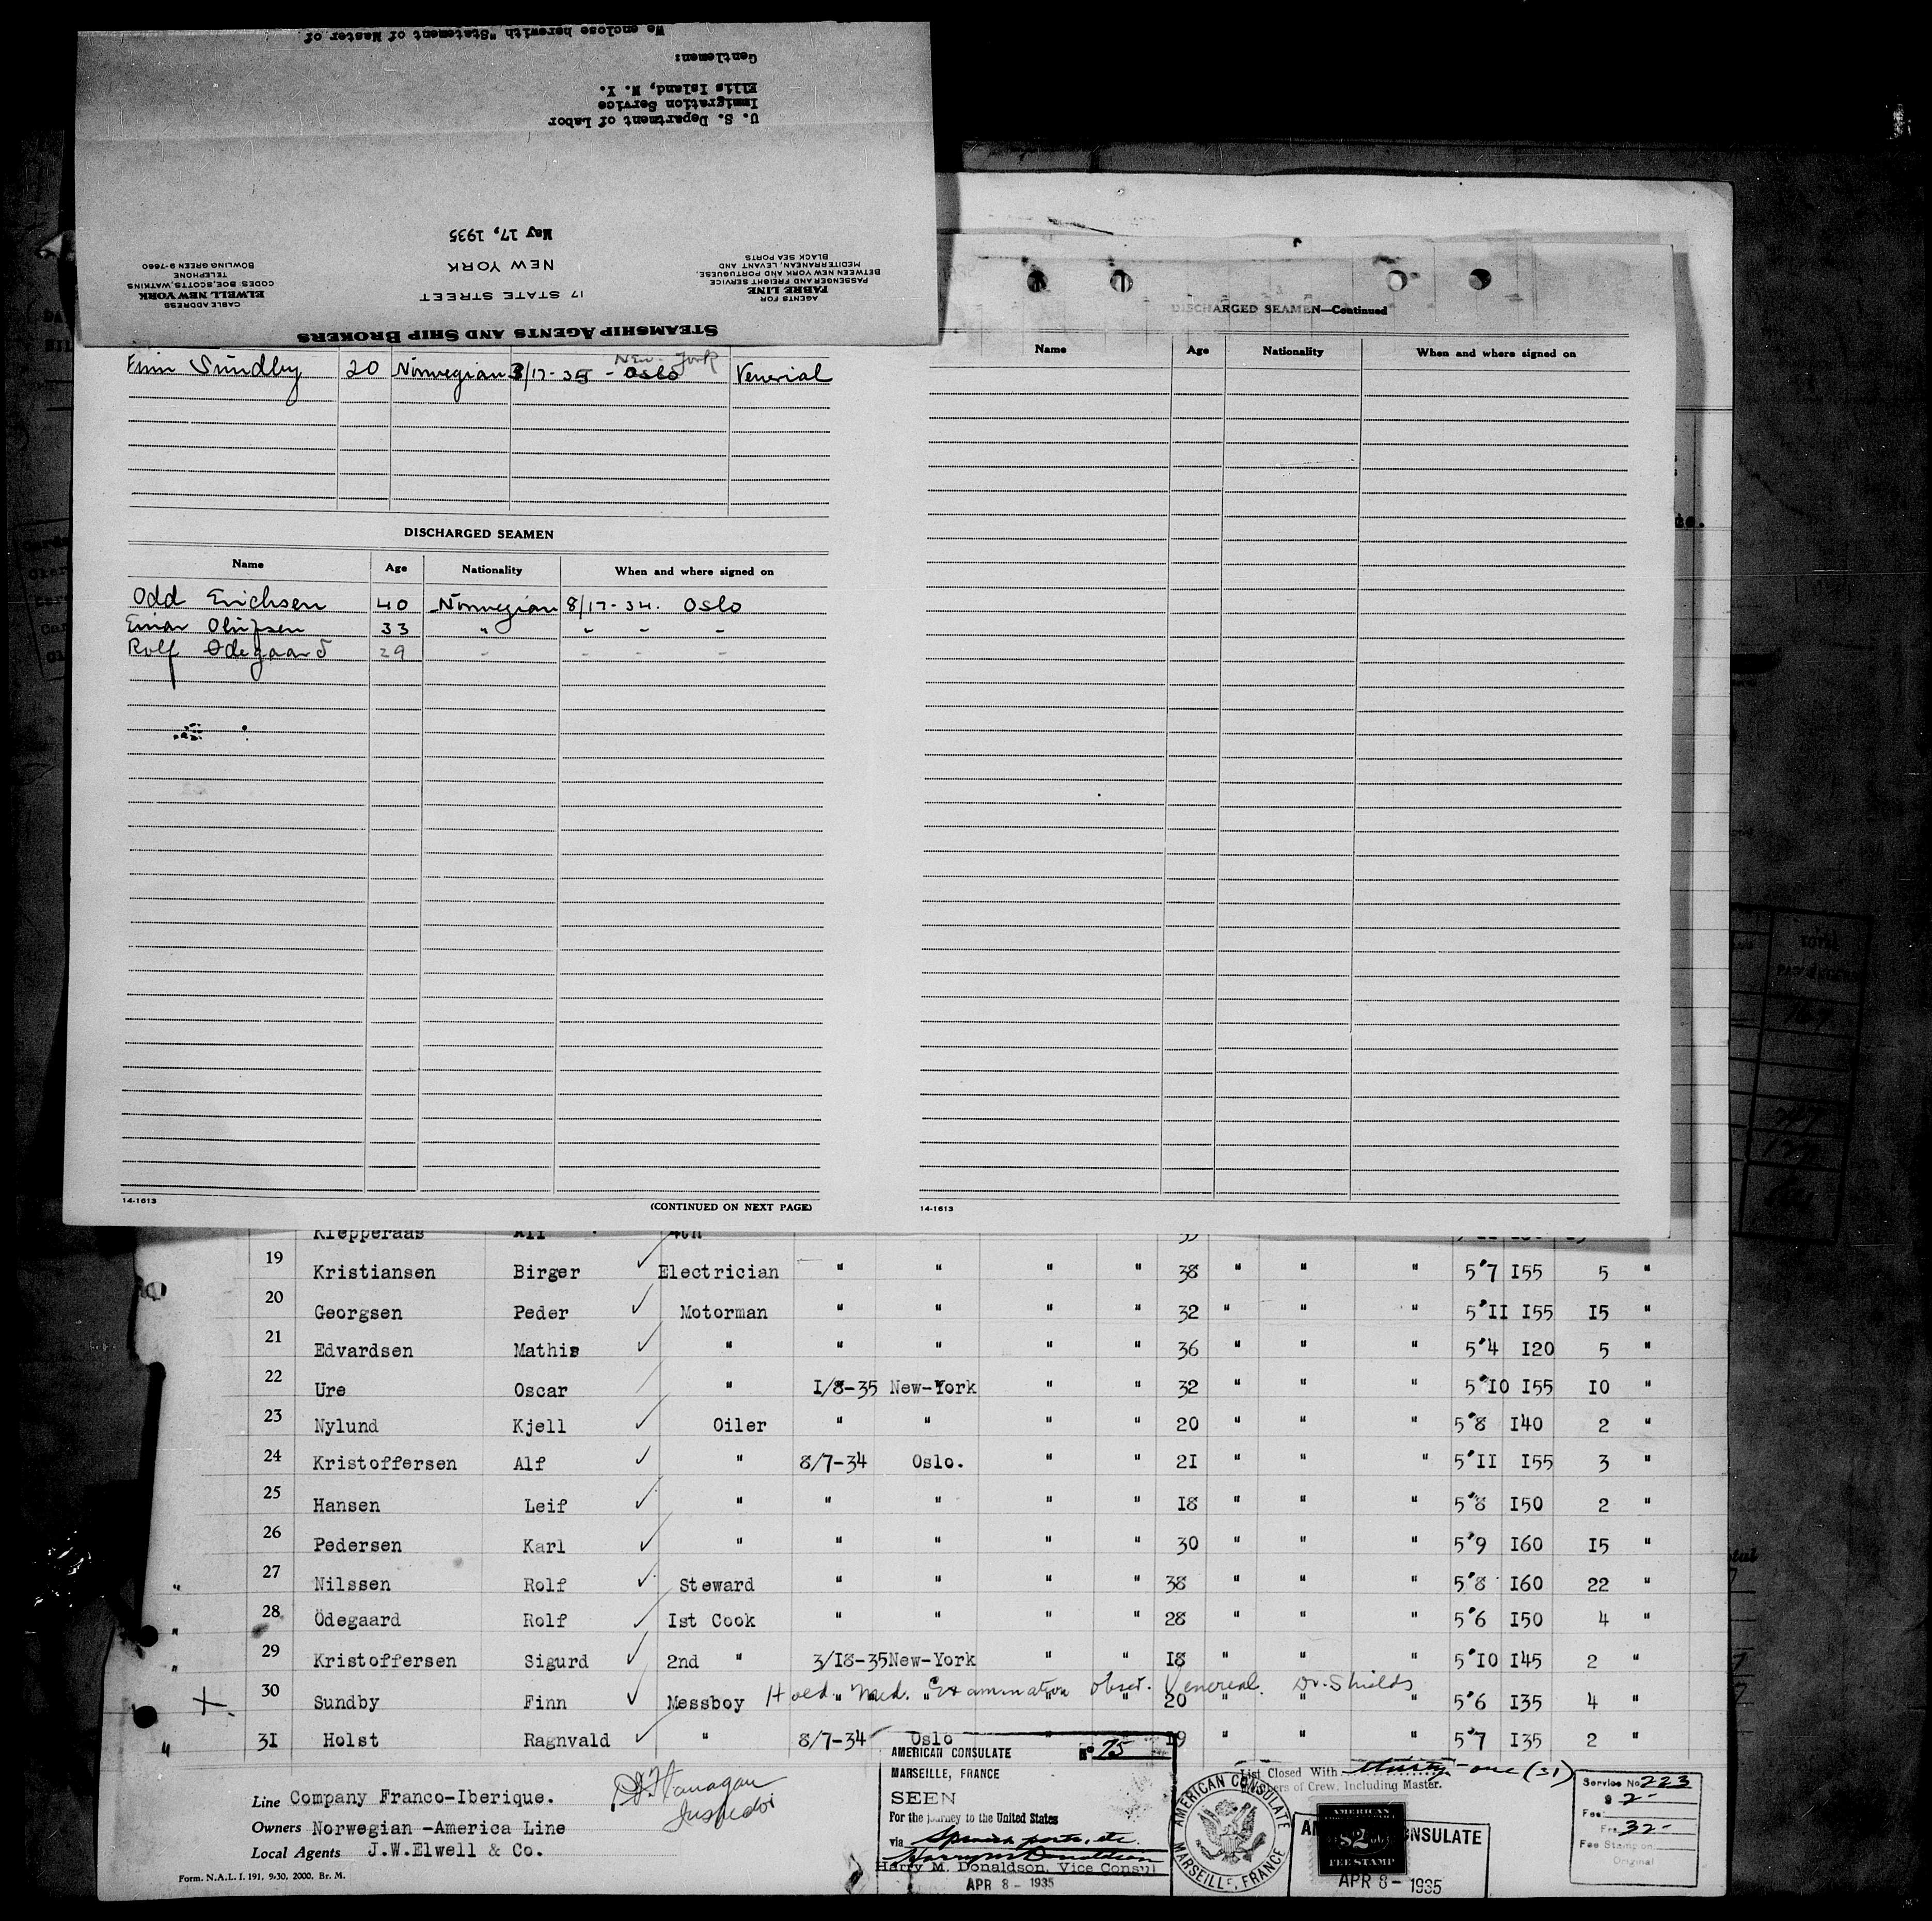 We enclose herewith "Statement of Master of
Gentlemen:
Ellis Island, N. Y.
Immigration Service
U. S. Department of Labor
May 17, 1935
NEW YORK
17 STATE STREET
BOWLING GREEN 9-7660
TELEPHONE
CODES: BOE, SCOTTS, WATKINS
ELWELL NEW YORK
CABLE ADDRESS
BLACK SEA PORTS
MEDITERRANEAN, LEVANT AND
BETWEEN NEW YORK AND PORTUGUESE,
PASSENGER AND FREIGHT SERVICE
FABRE LINE
AGENTS FOR
STEAMSHIP AGENTS AND SHIP BROKERS
New-York
Finn Sundby 20 Norwegian 3/17-35 - Oslo Venerial
DISCHARGED SEAMEN
Name Age Nationality When and where signed on
Odd Erichsen 40 Norwegian 8/17-34. Oslo
Einar 33 " " - -
Rolf Odegaard 29 - - - -
14-1613 (CONTINUED ON NEXT PAGE)
DISCHARGED SEAMEN—Continued
Name Age Nationality When and where signed on
14-1613
Klepperaas Alf 4th
19 Kristiansen Birger Electrician " " " " 38 " " " 5'7 I55 5 "
20 Georgsen Peder Motorman " " " " 32 " " " 5'II I55 I5 "
21 Edvardsen Mathis " " " " " 36 " " " 5'4 I20 5 "
22 Ure Oscar " I/8-35 New-York " " 32 " " " 5'IO I55 IO "
23 Nylund Kjell Oiler " " " " 20 " " " 5'8 I40 2 "
24 Kristoffersen Alf " 8/7-34 Oslo. " " 2I " " " 5'II I55 3 "
25 Hansen Leif " " " " " I8 " " " 5'8 I50 2 "
26 Pedersen Karl " " " " " 30 " " " 5'9 I60 I5 "
" 27 Nilssen Rolf Steward " " " " 38 " " " 5'8 I60 22 "
" 28 Ödegaard Rolf Ist Cook " " " " 28 " " " 5'6 I50 4 "
" 29 Kristoffersen Sigurd 2nd " 3/I8-35 New-York " " I8 " " " 5'IO I45 2 "
Hold Med. Examination obser. Venereal. Dr. Shields
30 Sundby Finn Messboy " " " " 20 " " " 5'6 I35 4 "
" 3I Holst Ragnvald " 8/7-34 Oslo " " I9 " " " 5'7 I35 2 "
Line Company Franco-Iberique.
Owners Norwegian -America Line
Local Agents J.W.Elwell & Co.
Form. N.A.L. I. 191. 9-30. 2000. Br. M.
Flanagan
Inspector
AMERICAN CONSULATE No 75
MARSEILLE, FRANCE
SEEN
For the journey to the United States
via Spanish ports, etc.
Harry M Donaldson
Harry M. Donaldson, Vice Consul
APR 8 - 1935
AMERICAN CONSULATE
MARSEILLE, FRANCE
List Closed With thirty-one (31)
Members of Crew, Including Master.
AMERICAN
$2
FEE STAMP
CONSULATE
APR 8 - 1935
Service No. 223
$ 2-
Fee
Frs 32-
Fee Stamp on
Original